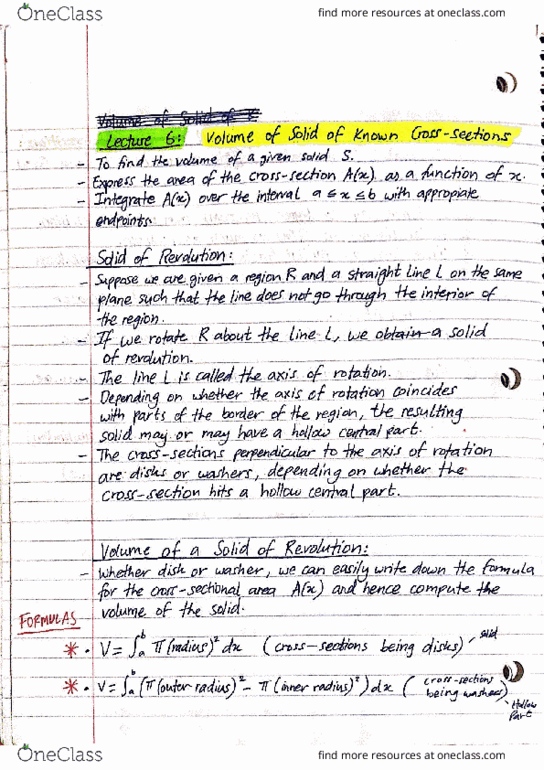 OneClass
find more resources at oneclass.com
Volume of Solid of
Lecture 6: Volume of Solid of Known Cross-sections
- To find the volume of a given solid S.
- Express the area of the cross-section A(x) as a function of x.
- Integrate A(x) over the interval a ≤ x ≤ b with appropiate
endpoints.
Solid of Revolution:
- Suppose we are given a region R and a straight line L on the same
plane such that the line does not go through the interior of
the region.
- If we rotate R about the line L, we obtain a solid
of revolution.
- The line L is called the axis of rotation.
- Depending on whether the axis of rotation coincides
with parts of the border of the region, the resulting
solid may or may have a hollow central part.
- The cross-sections perpendicular to the axis of rotation
are disks or washers, depending on whether the
cross-section hits a hollow central part.
Volume of a Solid of Revolution:
- Whether disk or washer, we can easily write down the formula
for the cross-sectional area A(x) and hence compute the
volume of the solid.
FORMULAS
* • V = ∫ₐᵇ π(radius)² dx (cross-sections being disks) solid
* • V = ∫ₐᵇ (π(outer radius)² - π(inner radius)²) dx (cross-sections being washers)
Hollow
Part
OneClass
find more resources at oneclass.com